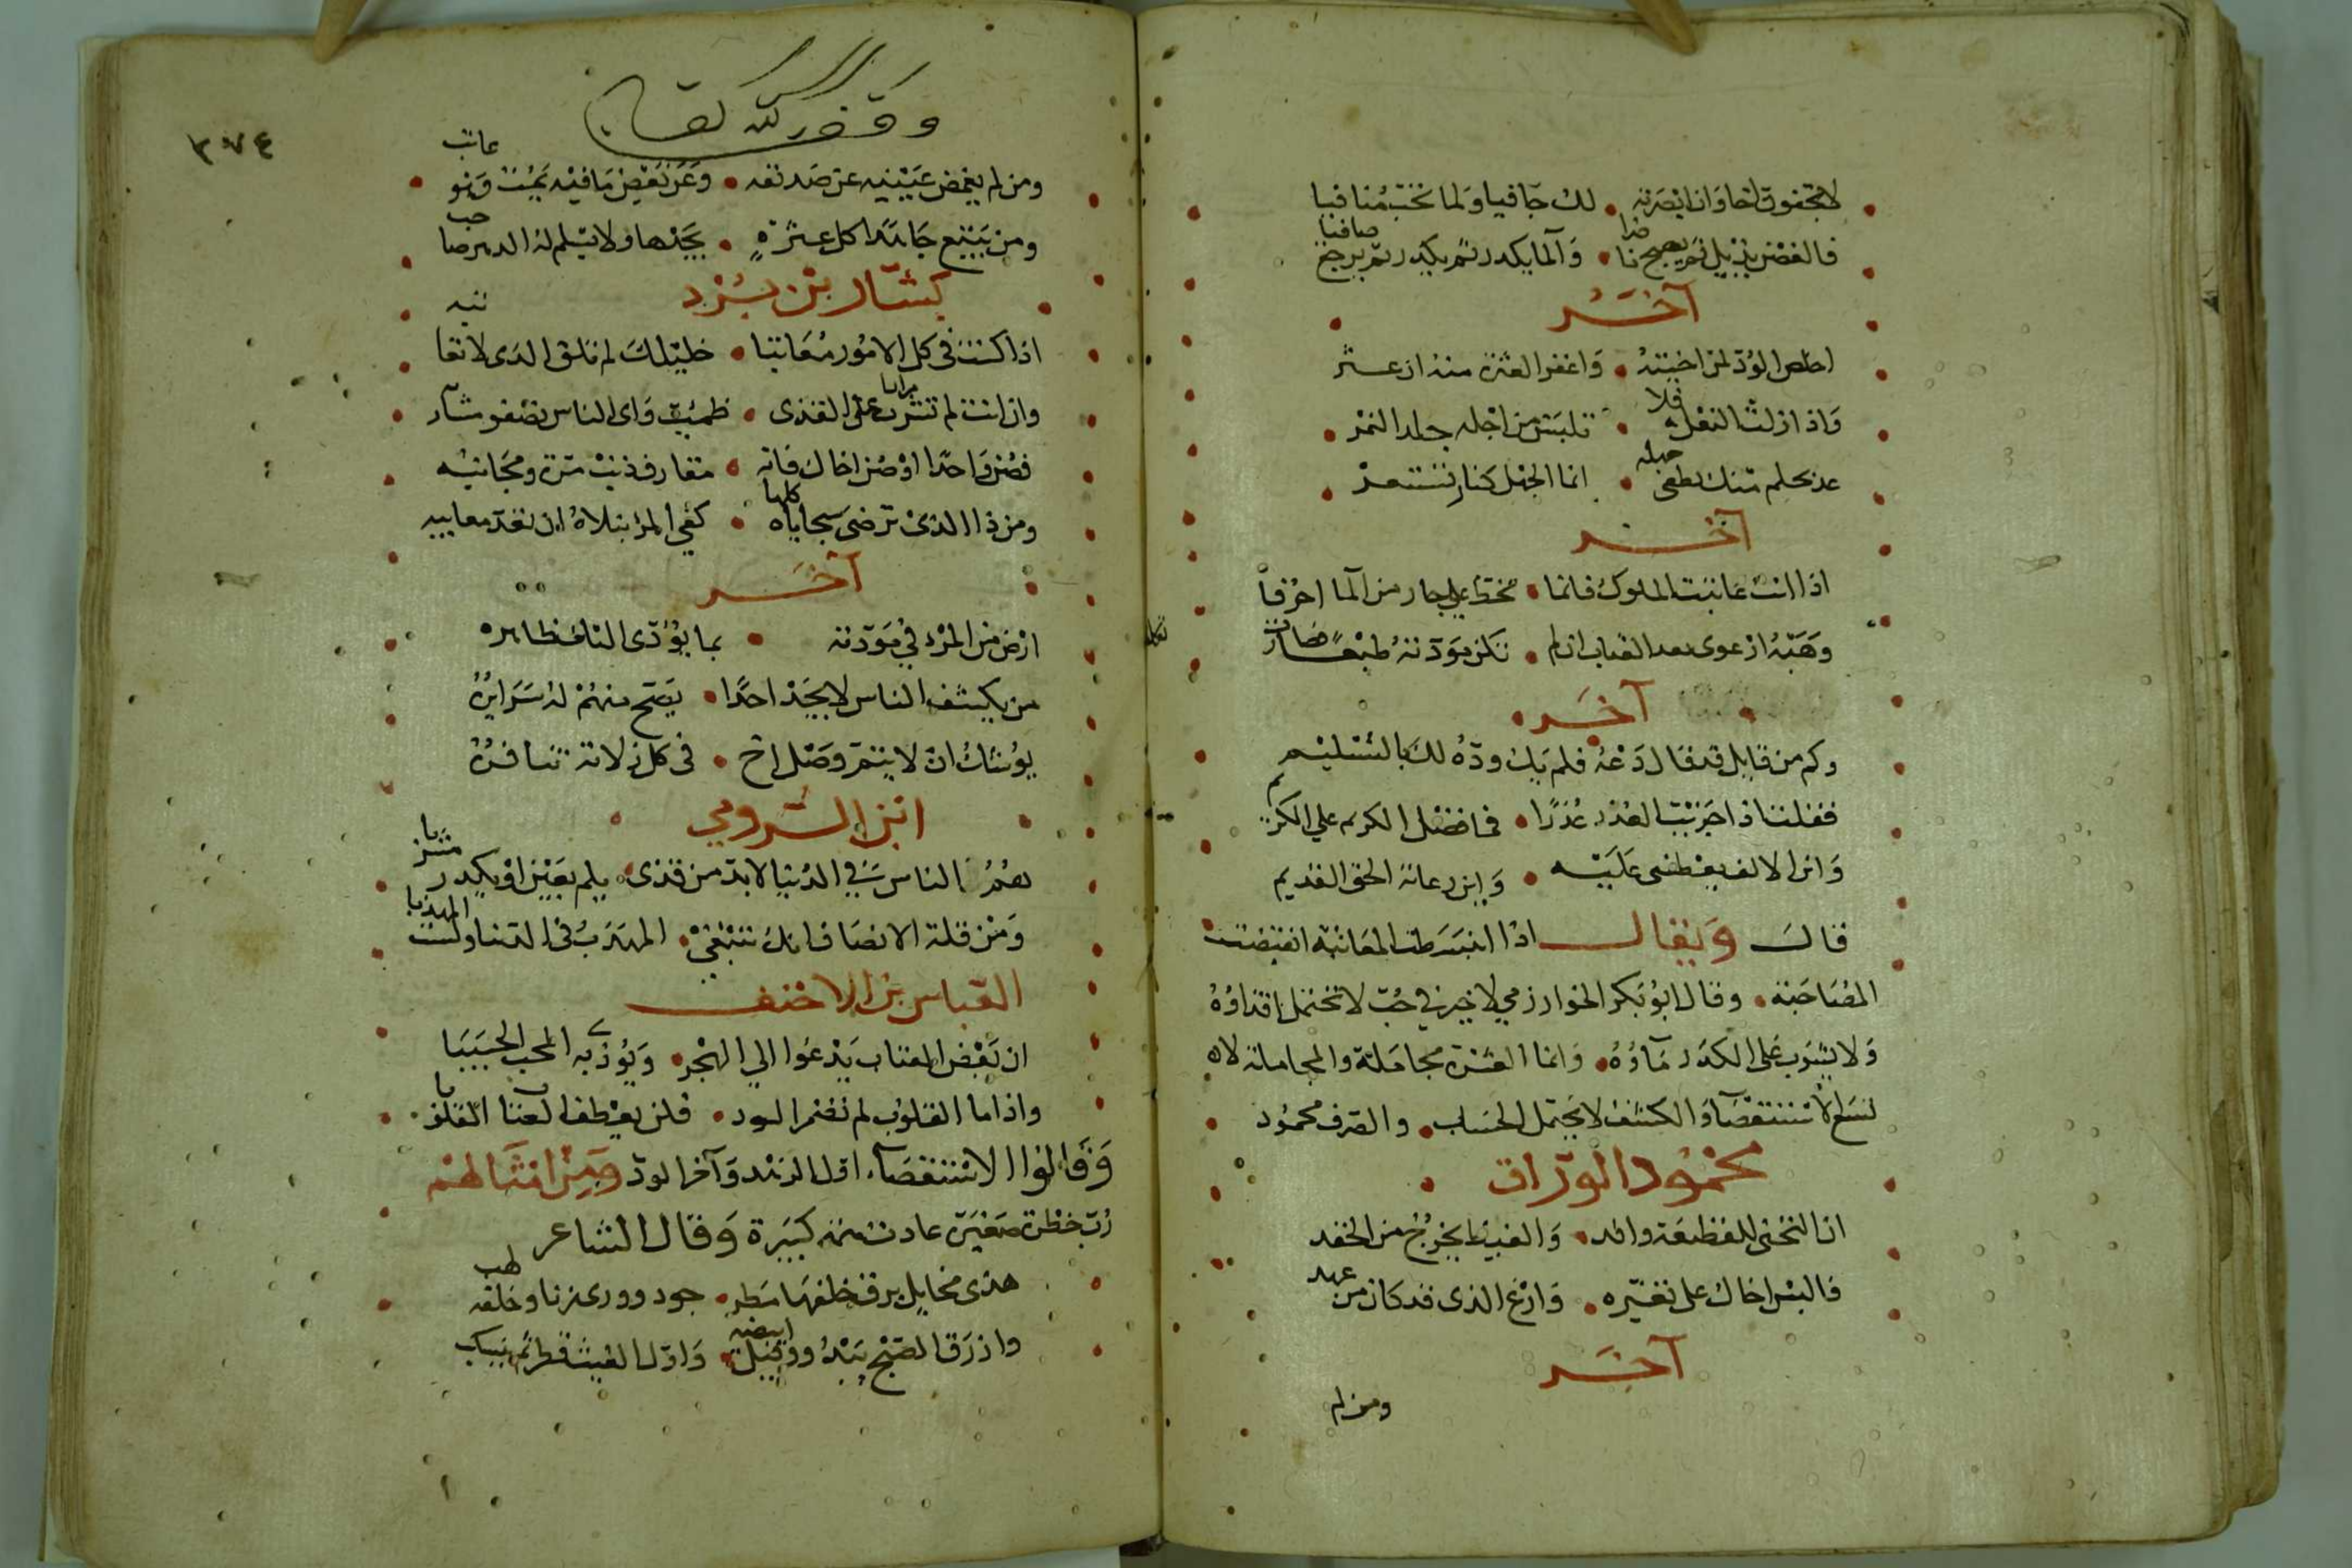 لا تجفون اخا وان ابصرته • لك جافيا ولما تحب منافيا
فالغصن يذبل ثم يصبح ناضرا • والما يكدر ثم يكدر ثم يرجع صافيا
آخر
اخلص الود لمن اخيته • واغفر العثرة منه ان عثر
واذا زلت النعل به فلا • تلبسن من اجله جلد النمر
عد بحلم منك يطفى جهله • انما الجهل كنار تستعر
آخر
اذا انت عاتبت الملوك فانما • تخط على جار من الما احرفا
وهبه ارعوى بعد العتاب الم • تكن مودته طبعا فصارت تكلفا
آخر
وكم من قايل قد قال دعه فلم يك وده لك بالسليم
فقلت اذا جزيت الغدر غدرا • فما فضل الكريم على اللئيم
واين الالف يعطفنى عليه • واين رعاية الحق القديم
قال ويقال اذا انبسطت المعاتبة انقبضت
المصاحبة • وقال ابو بكر الخوارزمي لا خير في حب لا تحتمل اقذاؤه
ولا يشرب على الكدر ماؤه • وانما العشرة مجاملة والمجاملة لا
تسع الاستقصا والكشف لا يحتمل الحساب • والصرف محمود
محمود الوراق
ان التجنى للقطيعة والد • والغيظ يخرج من الحقد
فالبس اخاك على تغيره • وارع الذى قد كان من عهد
آخر
ومن لم
وقف لله تعالى
٣٧٤
ومن لم يغمض عينيه عن صديقه • وعن بعض ما فيه يمت وهو عاتب
ومن يتتبع جاهدا كل عثرة • يجدها ولا يسلم له الدهر صاحب
بشار بن برد
اذا كنت فى كل الامور معاتبا • خليلك لم تلق الذى لا تعاتبه
وان انت لم تشرب مرارا على القذى • ظميت واى الناس تصفو مشاربه
فعش واحدا او صل اخاك فانه • مقارف ذنب مرة ومجانبه
ومن ذا الذى ترضى سجاياه كلها • كفى المرء نبلا ان تعد معايبه
آخر
ارض من المرء في مودته • بما يؤدى اليك ظاهره
من يكشف الناس لا يجد احدا • يصح منهم له سرايره
يوشك ان لا يتم وصل اخ • فى كل زلاته تنافره
ابن الرومي
هم الناس في الدنيا لا بد من قذى • يلم بعين او يكدر مشربا
ومن قلة الانصاف انك تبتغي • المهذب فى الدنيا ولست المهذبا
العباس بن الاحنف
ان بعض العتاب يدعوا الي الهجر • ويوذي به المحب الحبيبا
واذا ما القلوب لم تضمر الود • فلن يعطف العتاب القلوبا
وقالوا الاستقصاء اول الزهد وآخر الود ومن امثالهم
رب خطرة صغيرة عادت همة كبيرة وقال الشاعر
هذى مخايل برق خلفها مطر • جود وورى زنا وخلفه لهب
وازرق الصبح يبدو قبل ابيضه • واول الغيث قطر ثم ينسكب